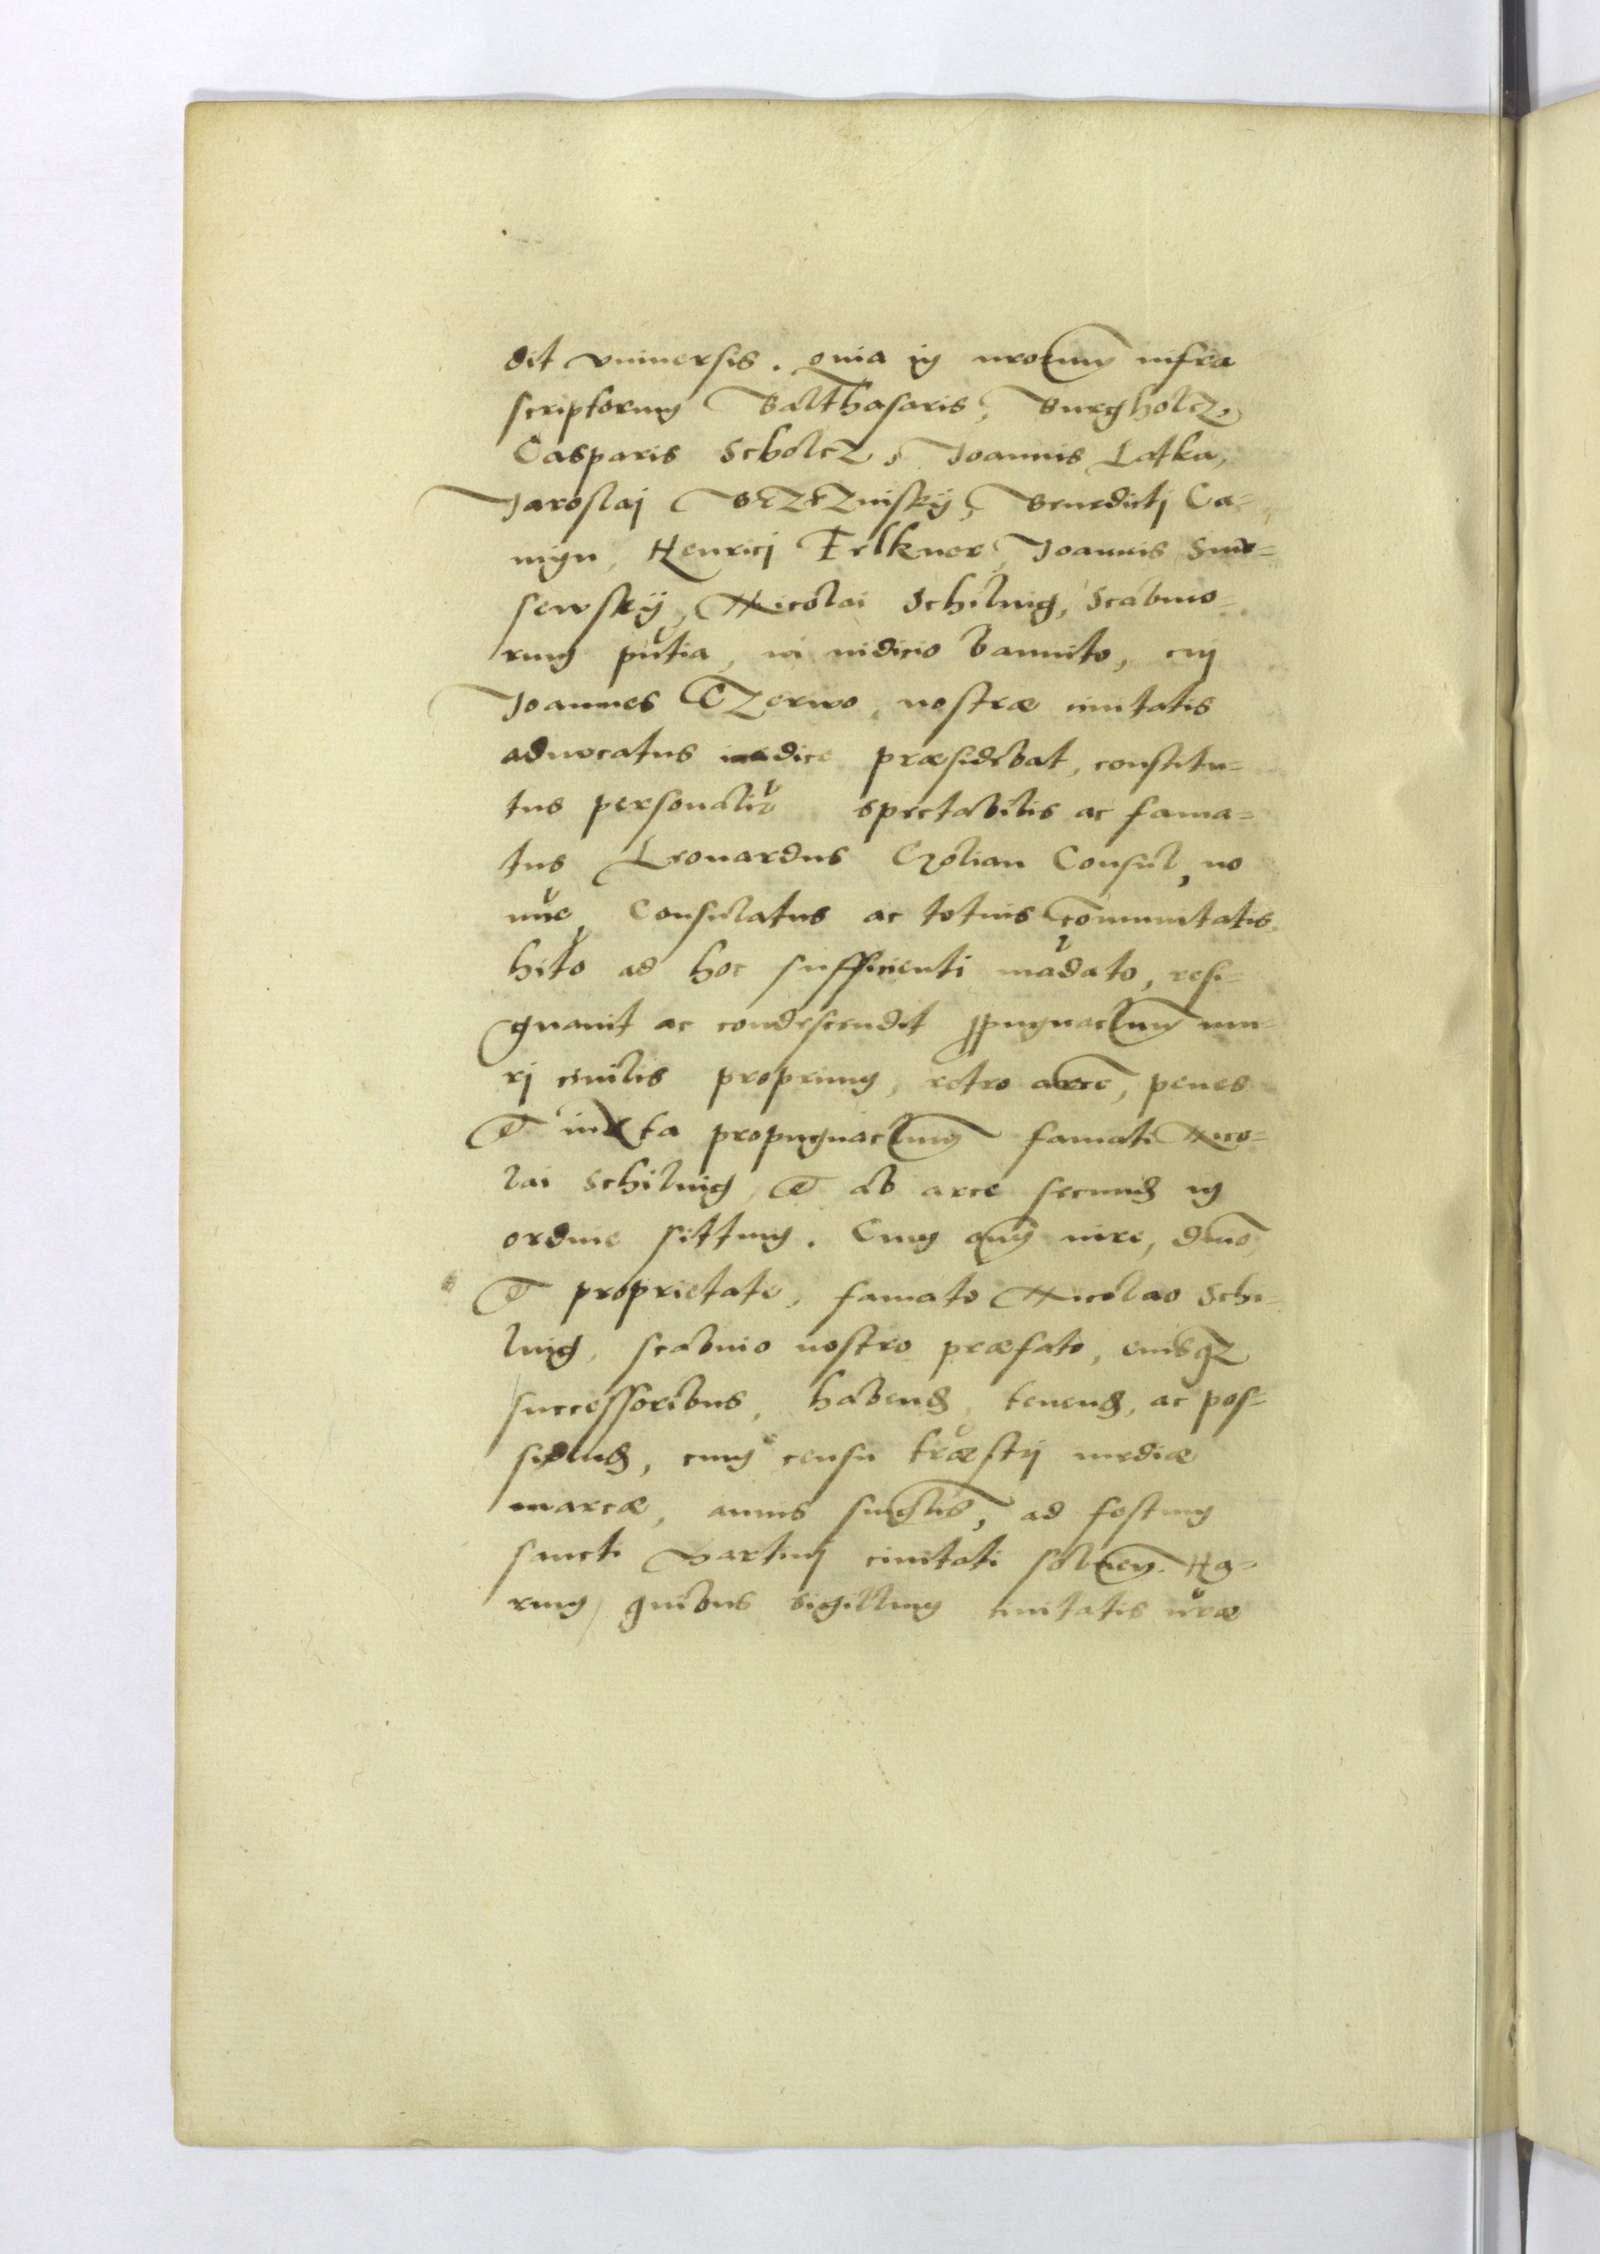 dit vniuersis. Quia in nrorum infra
scriptorum Balthasaris, Burgholcz,
Casparis Scholcz, Joannis Latka,
Jaroslaj Brzeznisky, Benedictj Ca=
nign, Henricj Felkner, Joannis Smo=
sewskij, Nicolai Schilnig, Scabino=
rum pñtia, in iudicio bannito, cuj
Joannes Czerwo, nostræ ciuitatis
aduocatus iudice præsidebat, constitu=
tus personalir spectabilis ac fama=
tus Leonardus Cyolian Consul, no
mĩe, Consulatus ac totius com̃unitatis
hito ad hoc sufficienti mãdato, resi=
gnauit ac condescendit ꝓpugnaclum mu=
rj ciuilis proprium, retro arcẽ, penes
& iuxta propugnaclum famati Nico=
lai Schilnig, & ab arce secund in
ordine sittum. Cum omi iure, dnio
& proprietate, famato Nicolao Schi=
lnig, scabino nostro præfato, eiusqz
successoribus, habend, tenend, ac pos=
sidend, cum censu træstij mediæ
marcæ, annis singlis, ad festum
sancti Martinj ciuitati soluen. Ha=
rum quibus sigillum ciuitatis nræ